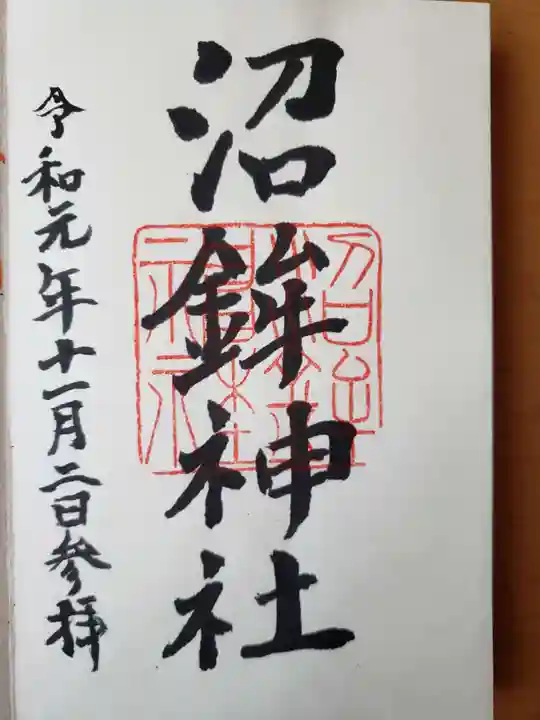 沼鉾神社
令和元年十一月二日参拝